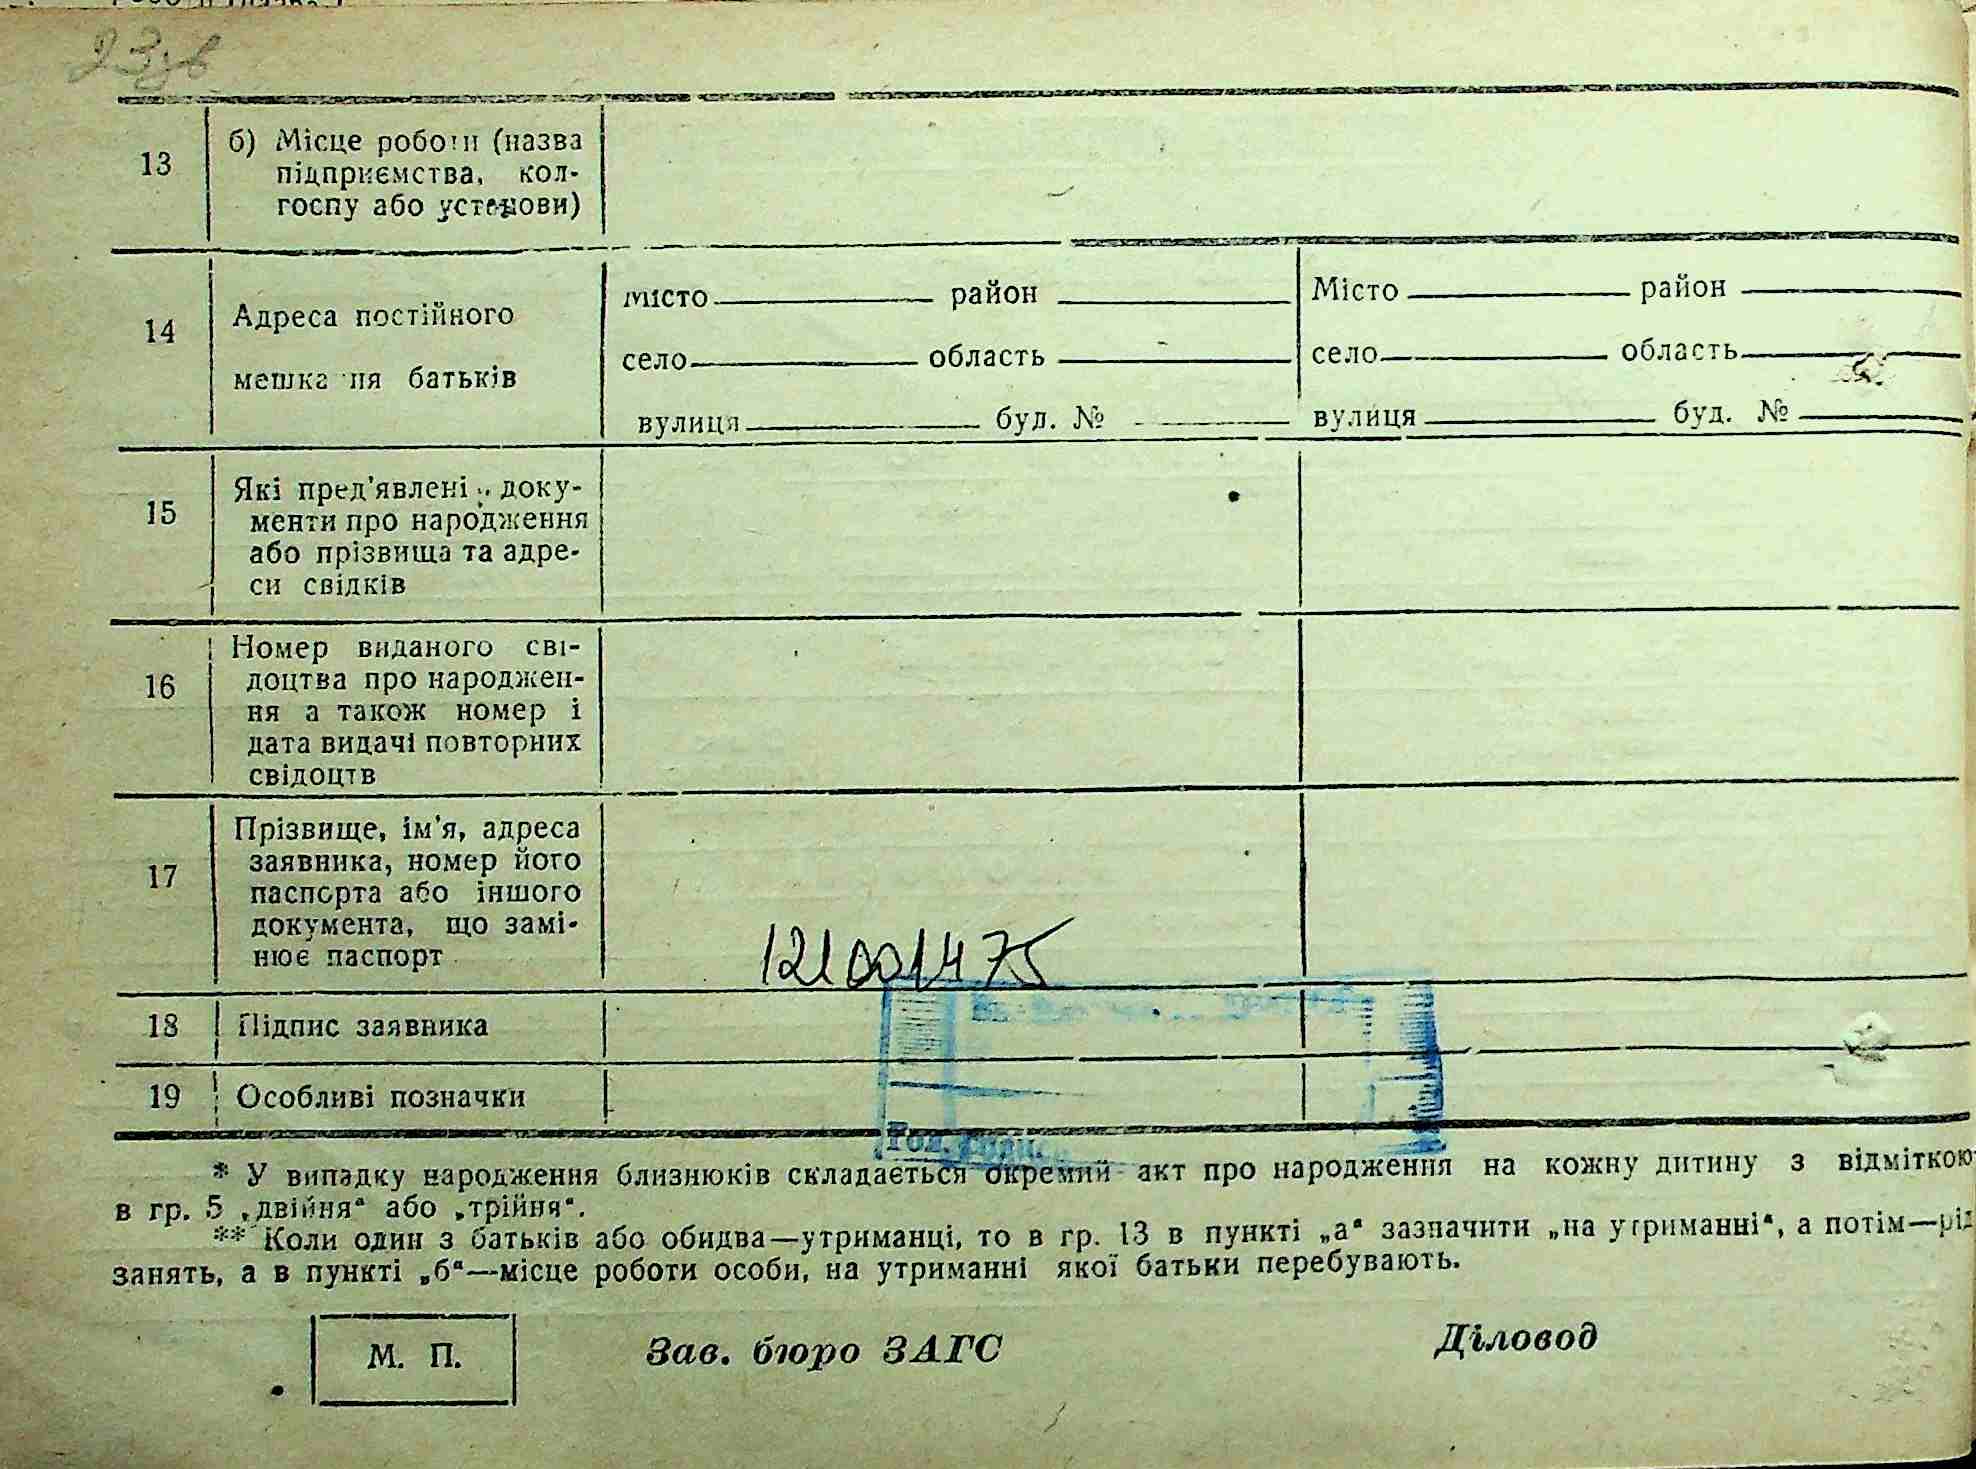 13
б) Місце роботи (назва
підприємства, кол-
госпу або установи)
14
Адреса постійного
мешкання батьків
місто район
село область
вулиця буд. №
Місто район
село область
вулиця буд. №
15
Які пред'явлені доку-
менти про народження
або прізвища та адре-
си свідків
16
Номер виданого сві-
доцтва про народжен-
ня а також номер і
дата видачі повторних
свідоцтв
17
Прізвище, ім'я, адреса
заявника, номер його
паспорта або іншого
документа, що замі-
нює паспорт
121001475
18
Підпис заявника
19
Особливі позначки
* У випадку народження близнюків складається окремий акт про народження на кожну дитину з відміткою
в гр. 5 „двійня“ або „трійня“.
** Коли один з батьків або обидва—утриманці, то в гр. 13 в пункті „а“ зазначити „на утриманні“, а потім—рід
занять, а в пункті „б“—місце роботи особи, на утриманні якої батьки перебувають.
М. П.
Зав. бюро ЗАГС
Діловод